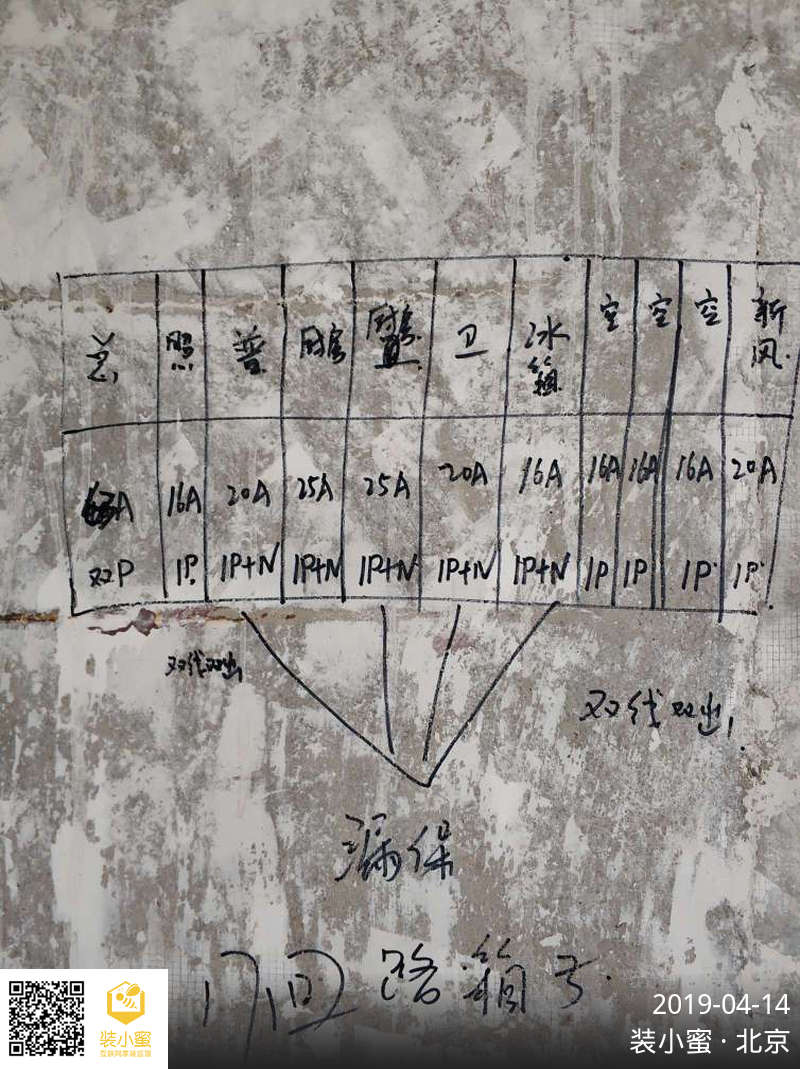 总 照 普 厨房 厨房 卫 冰箱 空 空 空 新风
A 16A 20A 25A 25A 20A 16A 16A 16A 16A 20A
双P 1P 1P+N 1P+N 1P+N 1P+N 1P+N 1P 1P 1P 1P
双线双出
双线双出
漏保
17回路箱子
2019-04-14
装小蜜·北京
装小蜜